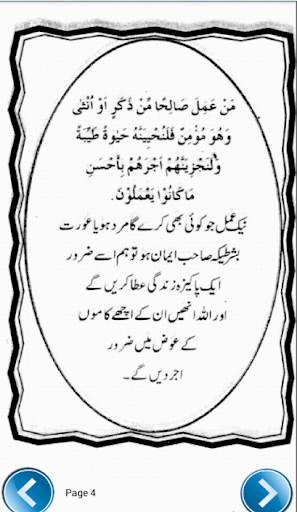 مَنْ عَمِلَ صَالِحًا مِّنْ ذَكَرٍ اَوْ اُنْثٰى
وَهُوَ مُؤْمِنٌ فَلَنُحْيِيَنَّهٗ حَيٰوةً طَيِّبَةً
وَلَنَجْزِيَنَّهُمْ اَجْرَهُمْ بِاَحْسَنِ
مَا كَانُوْا يَعْمَلُوْنَ.
نیک عمل جو کوئی بھی کرے گا مرد ہو یا عورت
بشرطیکہ صاحب ایمان ہو تو ہم اسے ضرور
ایک پاکیزہ زندگی عطا کریں گے
اور اللہ انھیں ان کے اچھے کاموں
کے عوض میں ضرور
اجر دیں گے۔
Page 4